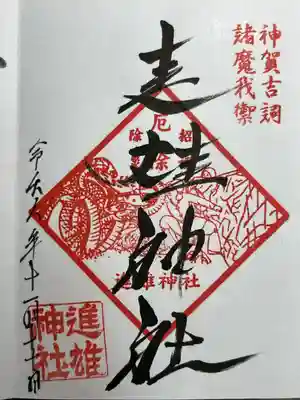 神賀吉詞
諸魔我禦
進雄神社
厄
除
招
進雄神社
令和六年十一月
進雄
神社